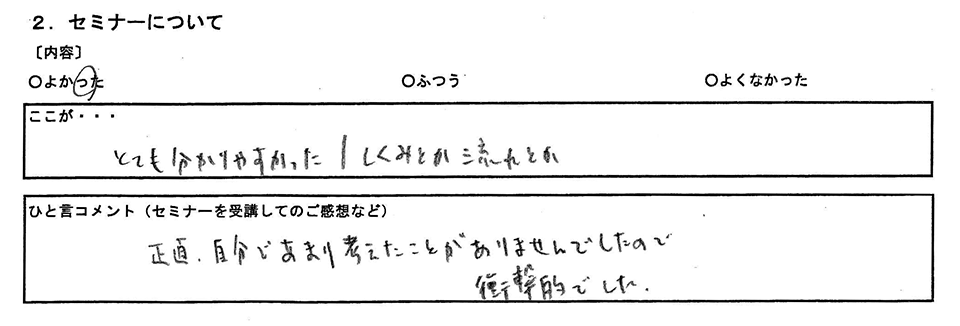 2．セミナーについて
〔内容〕
○よかった ○ふつう ○よくなかった
ここが・・・
とても分かりやすかった / しくみとか流れとか
ひと言コメント（セミナーを受講してのご感想など）
正直、自分であまり考えたことがありませんでしたので
衝撃的でした.